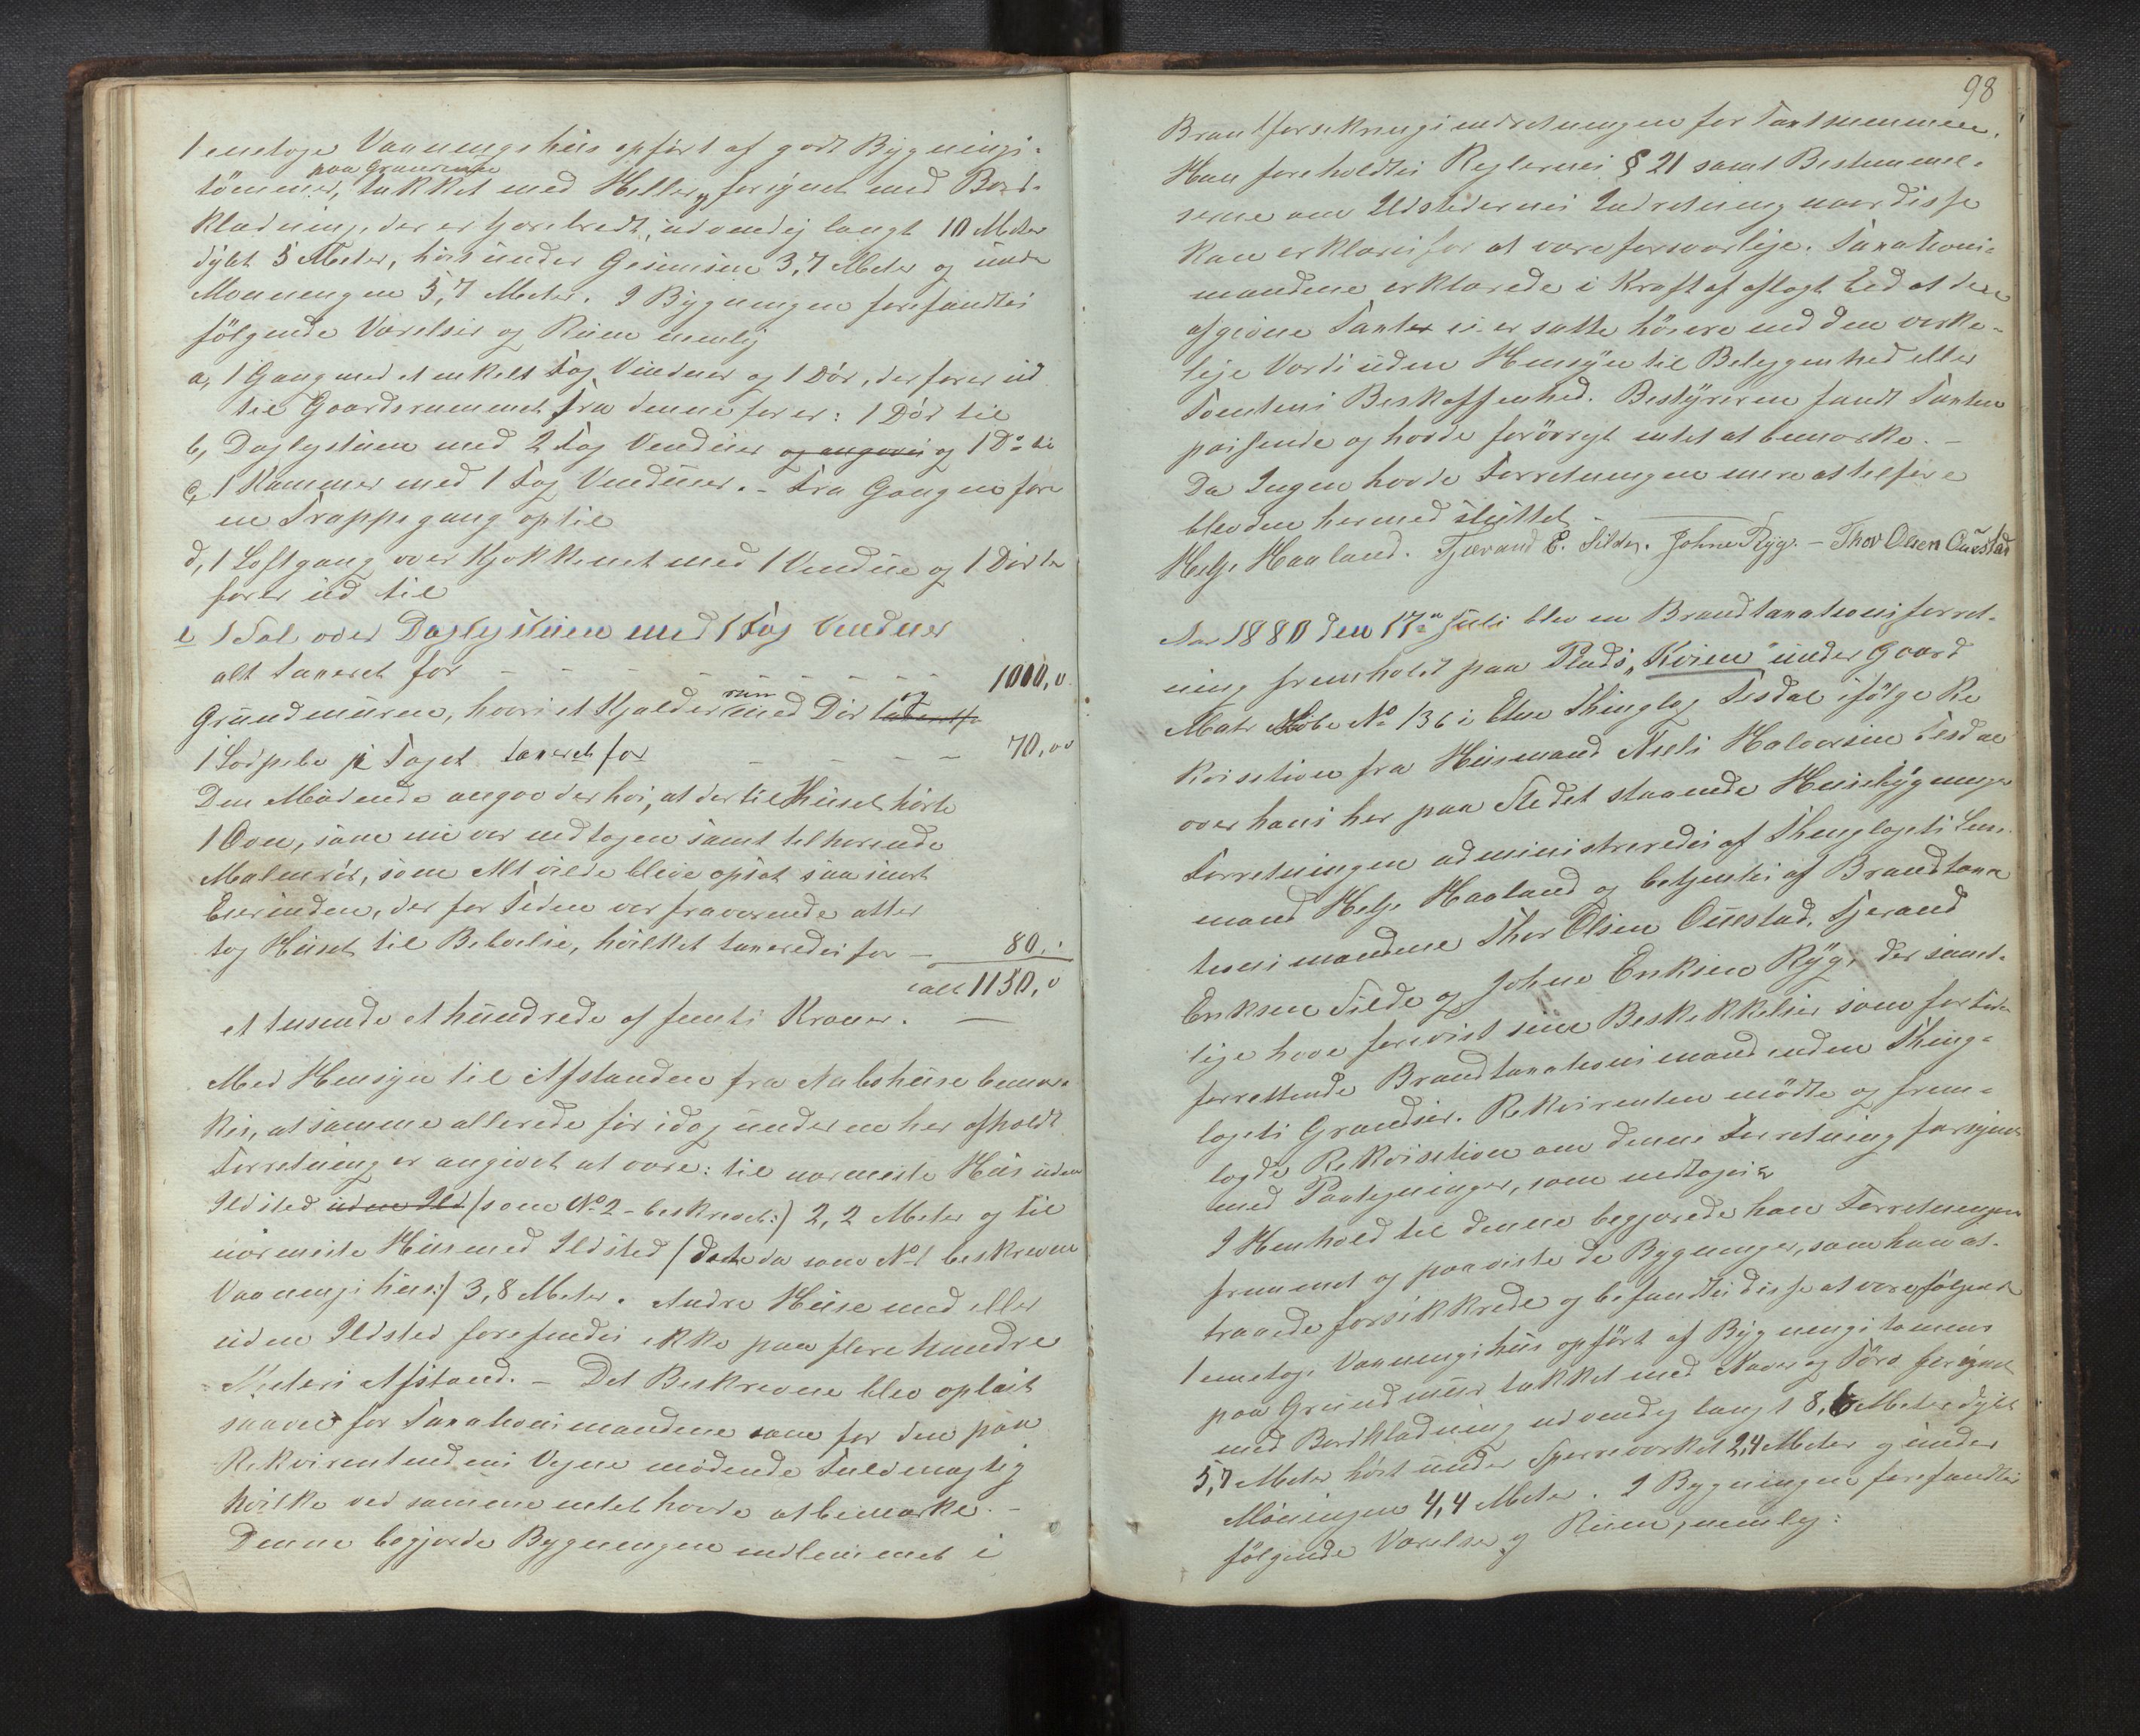 1 enetoges Vaaningshus opført af godt Bygnings-
paa Grundmur
tømmer, tækket med Heller, forsynet med Bord-
klædning, der er tjærebredt, udvendig langt 10 Meter
dybt 5 Meter, høit under Gesimsen 3,7 Meter og under
Mønningen 5,7 Meter. I Bygningen forefandtes
følgende Værelser og Rum nemlig
a, 1 Gang med et enkelt Fag Vinduer og 1 Dør, der fører ud
til Gaardsrummet. Fra denne fører: 1 Dør til
b, Daglystuen med 2 Fag Vinduer og 1 Do til
c, 1 Kammer med 1 Fag Vinduer. - Fra Gangen fører
en Trappegang op til
d, 1 Loftgang over Kjøkkenet med 1 Vindue og 1 Dør der
fører ud til
e 1 Sal over Daglystuen med 1 Fag Vinduer
alt taxeret for - - - - - - 1000,0
rum og
Grundmuren, hvori et Kjælder med Dør
1 Lodpibe på Taget taxeret for - - - - - 70,00
Den Mødende angav derhos, at der til Huset hørte
1 Ovn, som nu var nedtagen samt tilhørende
Malmrør, som Alt vilde blive opsat saa snart
Eierinden, der for Tiden var fraværende atter
tog Huset til Beboelse, hvilket taxeredes for - 80,"
ialt 1150,0
et tusende et hundrede og femti Kroner. —
Med Hensyn til Afstanden fra Nabohuse bemær-
kes, at samme allerede før idag under en her afholdt
Forretning er angivet at være: til nærmeste Hus uden
Ildsted uden Ild (som No 2 beskrevet:) 2,2 Meter og til
nærmeste Hus med Ildsted (dette da som No 1 beskrevne
Vaaningshus:) 3,8 Meter. Andre Huse med eller
uden Ildsted forefindes ikke paa flere hundre
Meters Afstand. - Det Beskrevne blev oplæst
saavel for Taxationsmændene som for den paa
Rekvirentindens Vegne mødende Fuldmægtig
hvilke ved samme intet havde at bemærke. -
Denne begjærede Bygningen indlemmet i
98
Brandforsikringsindretningen for Taxtsummen.
Han foreholdtes Reglernes § 21 samt Bestemmel-
serne om Ildstedernes Indretning naar disse
kan erklæres for at være forsvarlige. Taxations-
mændene erklærede i Kraft af aflagt Ed at den
afgivne Taxter ei er satte høiere end den virke-
lige Værdi uden Hensyn til Beliggenhed eller
Tomtens Beskaffenhed. Bestyreren fandt Taxten
passende og havde forøvrigt intet at bemærke. -
Da Ingen havde Forretningen mere at tilføre
blev den hermed sluttet.
Helge Haaland. Tjerand E. Silde. Johne Ryg. - Thor Olsen Ouestad
Aar 1880 den 17de Juli blev en Brandtaxationsforret-
ning fremholdt paa Plads "Kvien" under Gaard
Matr Løbe No 136 i Etne Thinglag Tesdal ifølge Re
kvisition fra Husmand Niels Halvorsen Tesdal
over hans her paa Stedet staaende Husebygninger
Forretningen administreredes af Thinglagets Lens-
mand Helge Haaland og betjentes af Brandtaxa
tionsmændene Thor Olsen Ouestad, Tjerand
Eriksen Silde og Johne Eriksen Ryg, der samt-
lige have forevist sine Beskikkelser som for Tiden
forrettende Brandtaxationsmænd inden Thing-
lagets Grændser. Rekvirenten mødte og frem-
lagde Rekvisition om denne Forretning forsynet
med Paategninger, som nedtages
I Henhold til denne begjærede han Forretningen
fremmet og paaviste de Bygninger, som han at-
traaede forsikkrede og befandtes disse at være følgende
1 enetoges Vaaningshus opført af Bygningstømmer
paa Grundmur tækket med Næver og Törv forsynet
med Bordklædning udvendig langt 8,6 Meter dybt
5,7 Meter høit under Sperreværket 2,4 Meter og under
Møningen 4,4 Meter. I Bygningen forefandtes
følgende Værelser og Rum, nemlig: